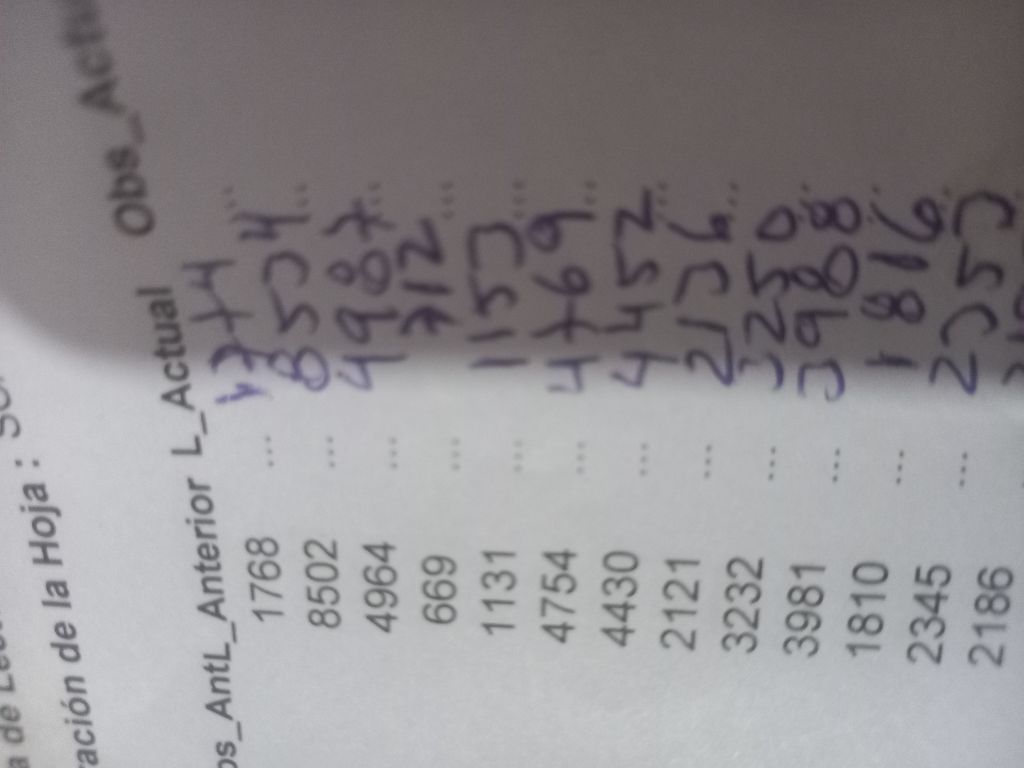 de
ración de la Hoja :
os_AntL_Anterior L_Actual Obs_Actu
1768 ... 1774 ...
8502 ... 8534 ...
4964 ... 4987 ...
669 ... 712 ...
1131 ... 1153 ...
4754 ... 4769 ...
4430 ... 4452 ...
2121 ... 2136 ...
3232 ... 3250 ...
3981 ... 3988 ...
1810 ... 1816
2345 ... 2353
2186